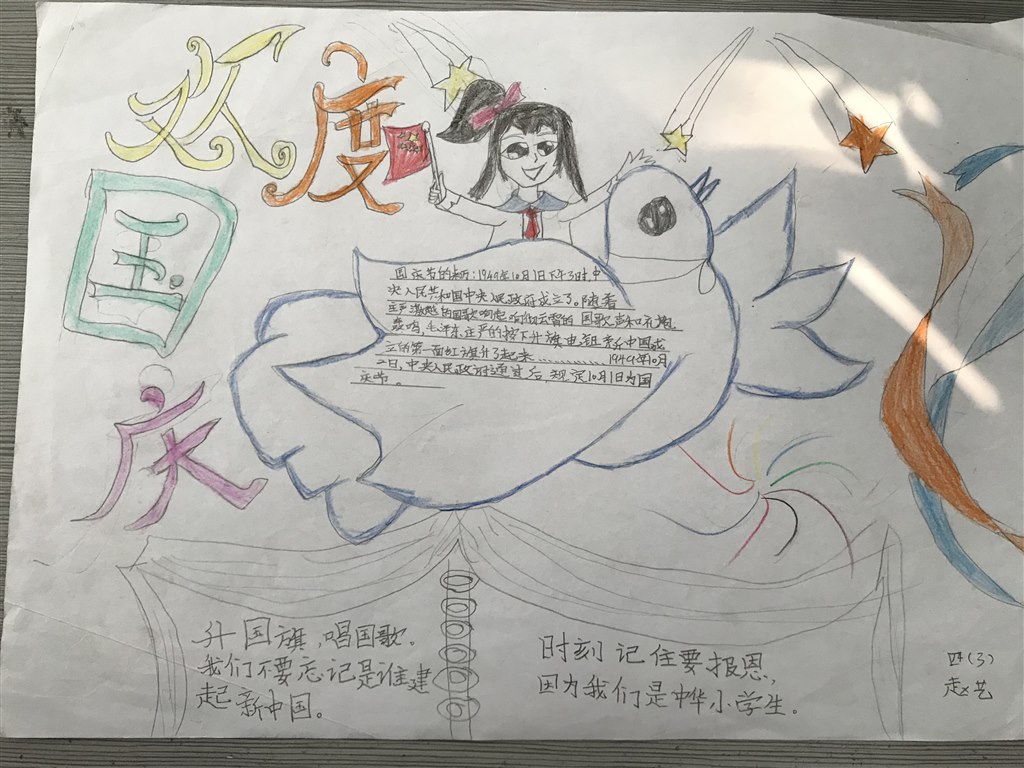 欢度
国
庆
国庆节的来历：1949年10月1日下午3时，中
央人民共和国中央人民政府成立了。随着
庄严激越的国歌响起 响彻云霄的 国歌声和礼炮
轰鸣，毛泽东庄严的按下升旗电钮 新中国成
立的第一面红旗升了起来…………1949年10月
2日，中央人民政府通过后，规定10月1日为国
庆节。
升国旗，唱国歌，
我们不要忘记是谁建
起新中国。
时刻记住要报恩，
因为我们是中华小学生。
四(3)
赵艺